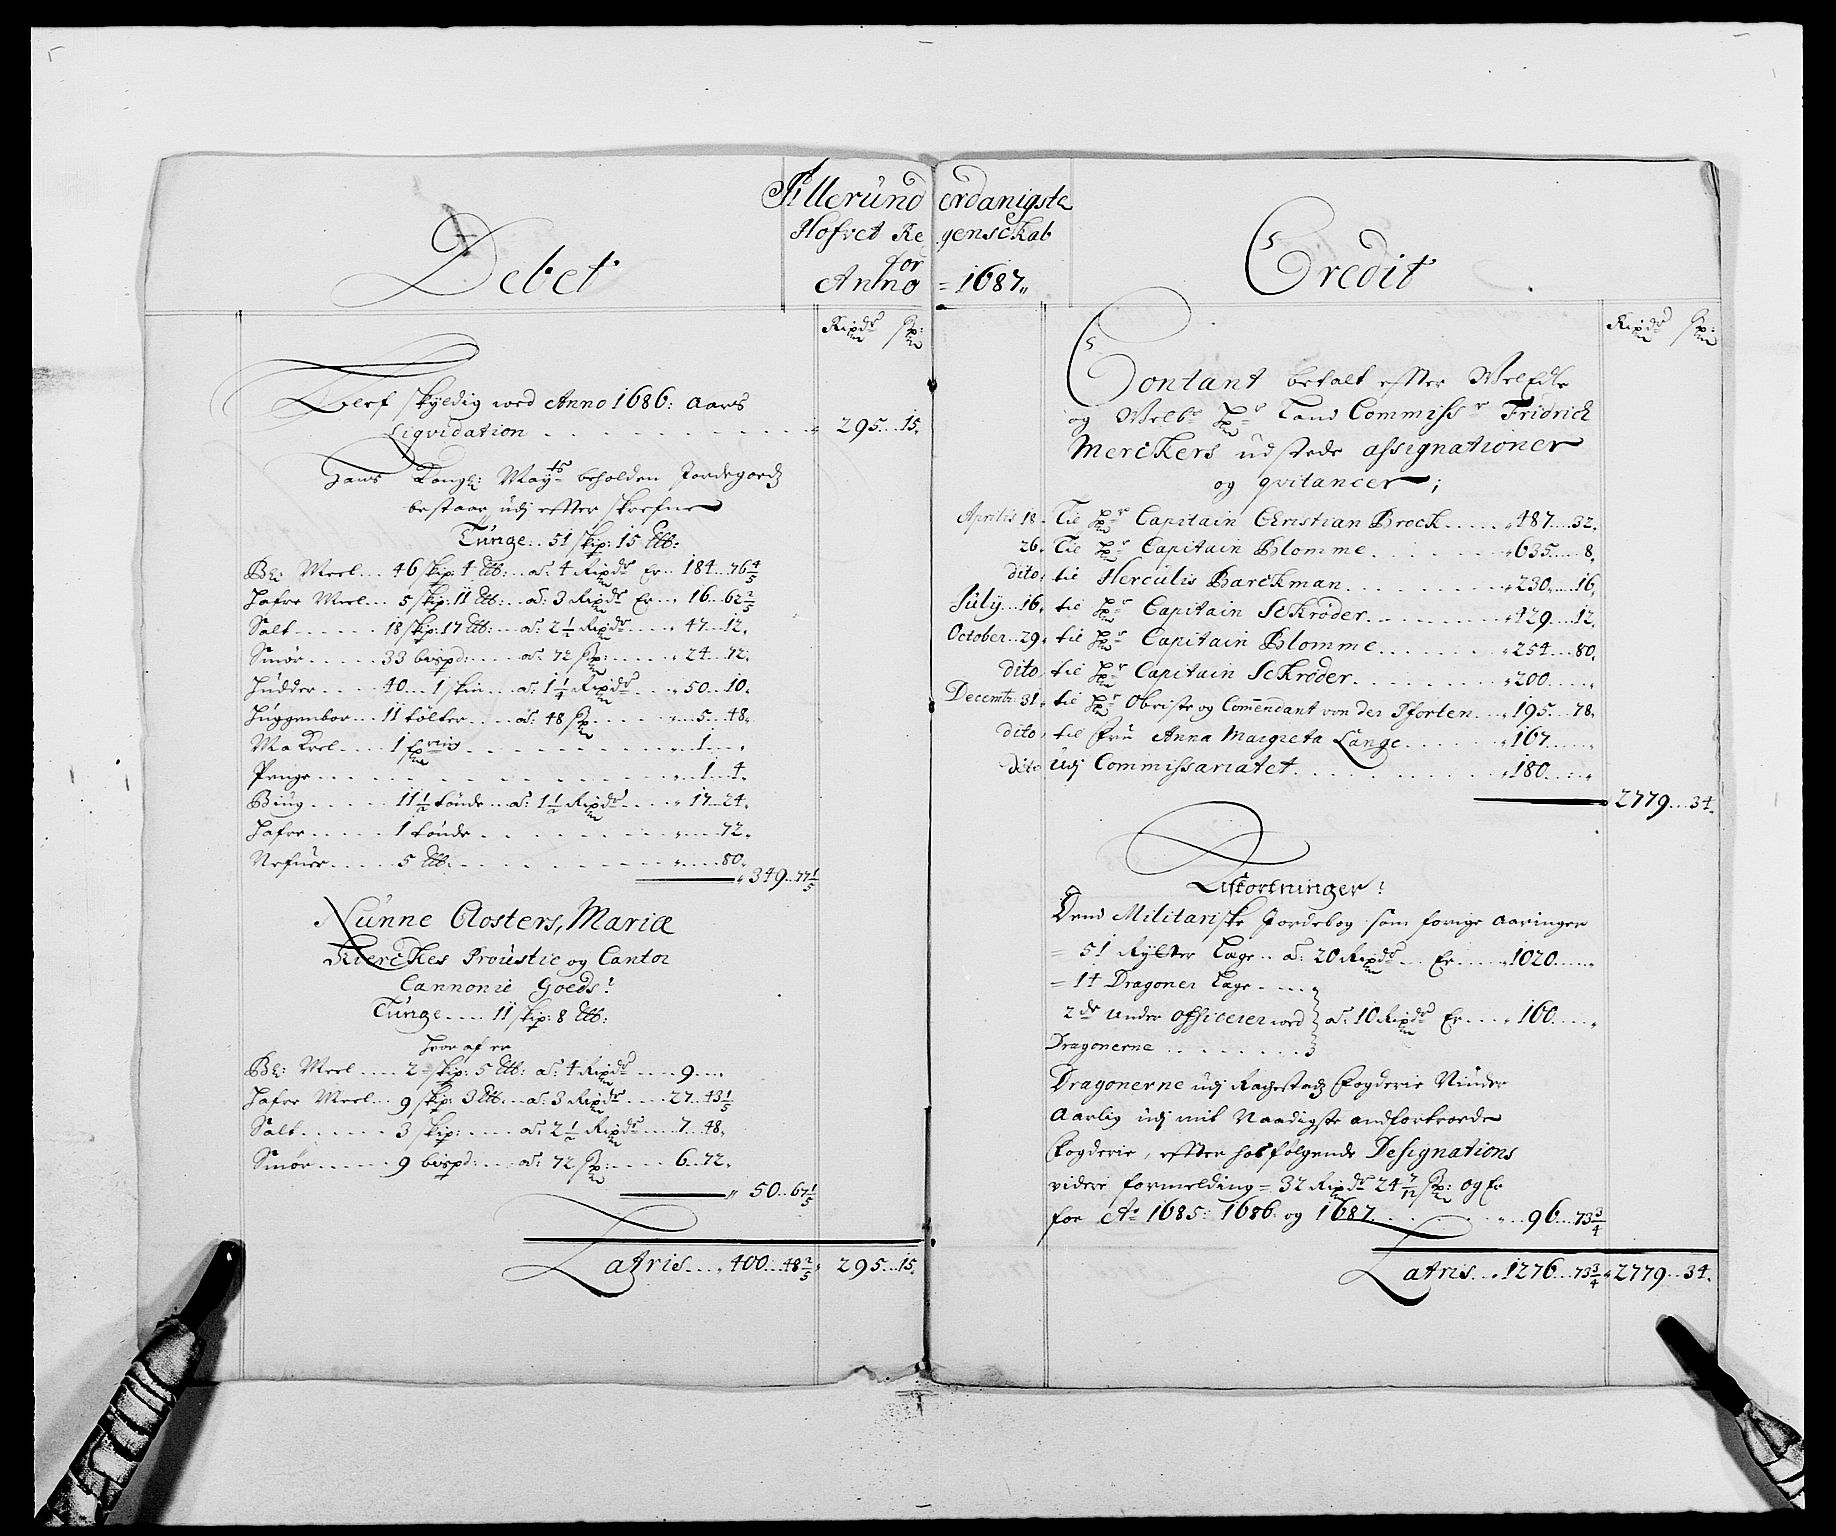 Allerund erdanigste
Hofvet Re genskab
for
Anno = 1687,,
Debet
Ripdr sk:
Blef skyldig ved Anno 1686: Aars
Liqvidation . . . . . . . . . . 295...15.
Hans Kongl: Mayts beholden Jordegods
bestaar udj efter skrefne
Tunge.. 51 skip: 15 Lb:
Bl: Meel... 46 skip. 4 Lb:... a: 4 Ripdr Er... 184...76 4/5
Hafre Meel... 5 skip: 11 Lb:... a: 3 Ripdr Er... 16...62 2/5
Salt...... 18 skip: 17 Lb:... a: 2 1/2 Ripdr..... 47...12.
Smør..... 33 bispd:..... a: 72 sk:...... 24...72.
Hudder.... 40... 1 skin... a: 1 1/4 Ripdr.... 50...10.
Huggenbor... 11 tolter.... a: 48 sk....... 5...48.
Makrel.... 1 . . . . . . . . 1....
Penge . . . . . . . . . . . 1...4.
Biug..... 11 1/2 tønde... a: 1 1/2 Ripdr.... 17...24.
Hafre..... 1 tønde . . . . . . . ....72.
Nefuer.... 5 Lb: . . . . . . . ....80.
349...77 1/5
Nunne Closters, Mariæ
Kierckes Proustie og Cantor
Cannonie Goeds!
Tunge.... 11 skip: 8 Lb:
hvor af er
Bl: Meel.... 2 skip: 5 Lb: a: 4 Ripdr.... 9....
Hafre Meel... 9 skip: 3 Lb:... a: 3 Ripdr.... 27...43 1/5
Salt...... 3 skip:..... a: 2 1/2 Ripdr.... 7...48.
Smør..... 9 bispd:.... a: 72 sk:..... 6...72.
50...67 1/5
Latris.... 400...48 2/5 295...15.
Credit
Ripdr sk:
Contant betalt efter Welædle
og Welbr Hr Land Commissr Fridrich
Merckers udstede assignationer
og qvitancer;
Aprilis 18. Til Hr Capitain Christian Brock..... 487...32.
26. Til Hr Capitain Blomme....... 635....8.
dito. til Herculis Barckman......... 230....16.
July... 16. til Hr Capitain Schrøder........ 429...12.
October... 29. til Hr Capitain Blomme....... 254...80.
dito. til Hr Capitain Schrøder........ 200....
Decembr 31. til Hr Obriste og Com̄endant von der Pforten... 195...78.
dito. til Fru Anna Margreta Lange....... 167....
dito udj Commissariatet.......... 180....
2779...34.
Afkortninger!
Dend Militariske Jordebog som forige Aaringer
= 51 Rytter Læge.. a: 20 Ripdr... Er..... 1020....
= 14 Dragoner Læge.....
2de under officerer ved a: 10 Ripdr Er.... 160....
Dragonerne . . . . . . . .
Dragonerne udj Rachestads Fogderie Niuder
Aarlig udj mit Naadigste andfortroede
Fogderie, efter hosfølgende Designations
videre formelding = 32 Ripdr 24 7/12 sk: og Er
for Ao 1685: 1686: og 1687....... 96...73 3/4
Latris... 1276...73 3/4 2779...34.